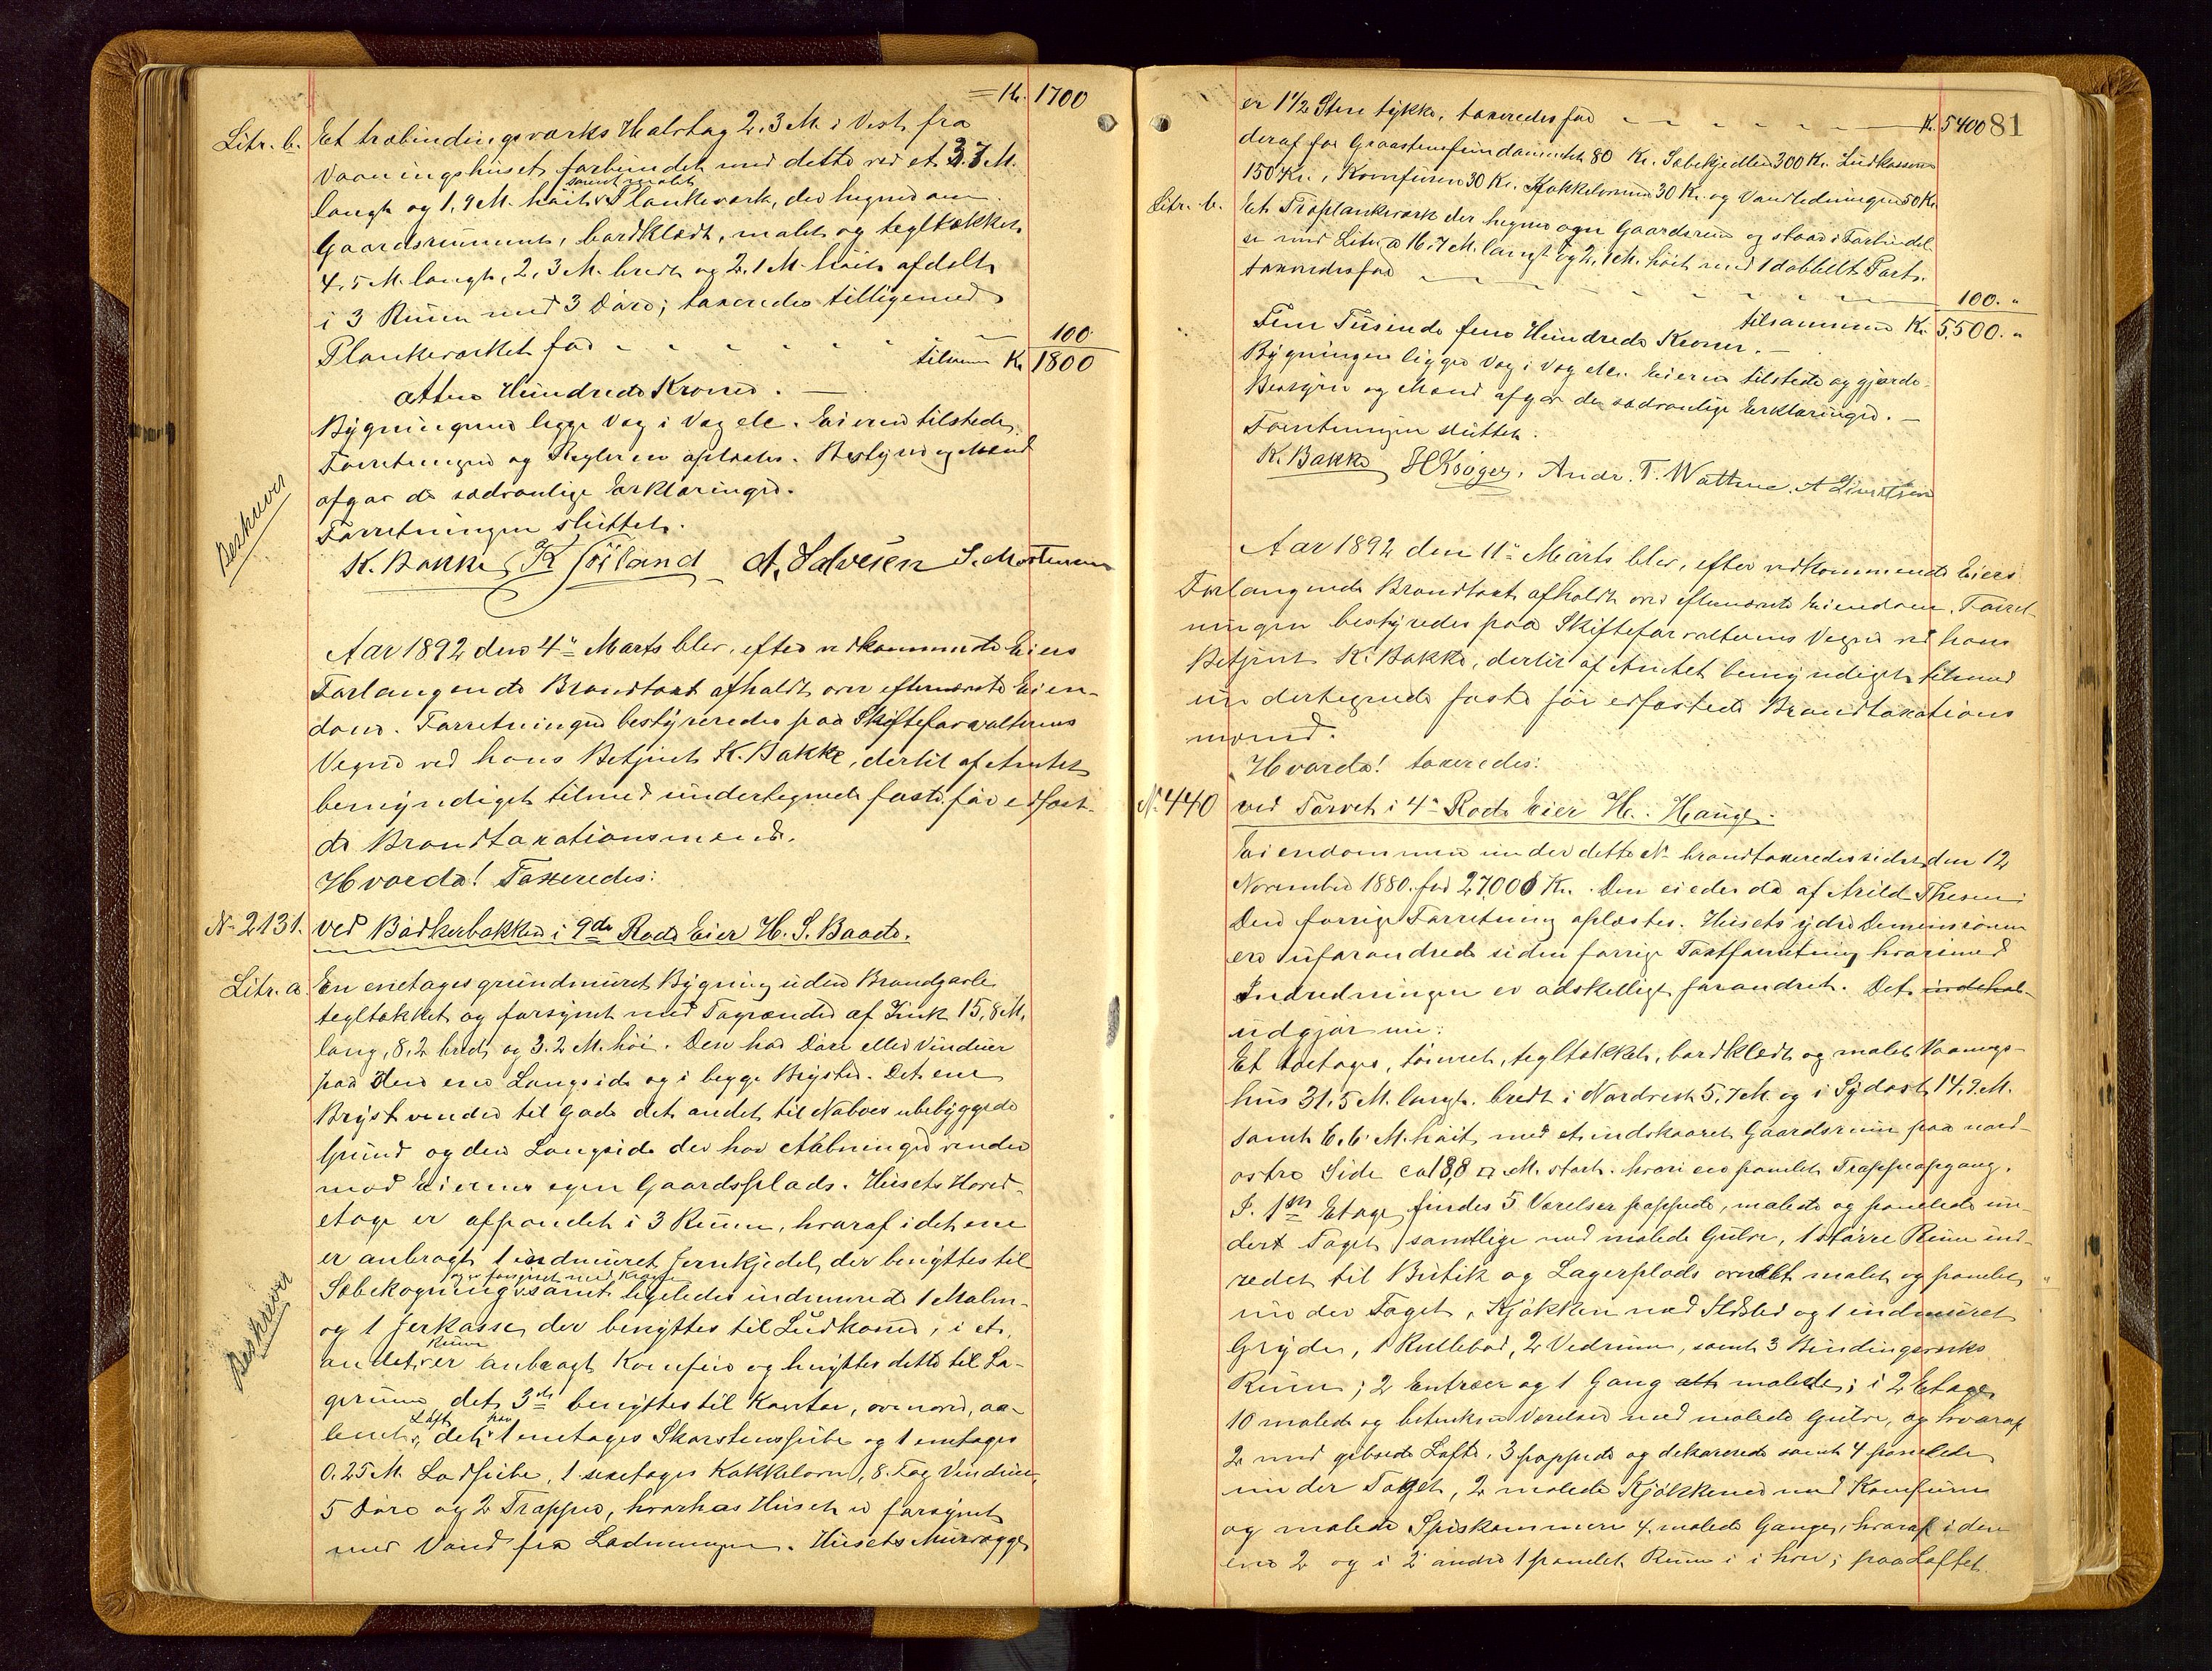 = Kr. 1700
Litr. b. Et træbindingsværks Halvtag 2,3 M. i Vest fra
Vaaningshuset forbundet med dette ved et 3,7 M.
langt og 1,9 M. høit samt malet Plankeværk, der hegner om
Gaardsrummet, bordklædt, malet og tegltækket,
4,5 M. langt, 2,3 M. bredt og 2,1 M. høit afdelt
i 3 Rum med 3 Døre; taxeredes tilligemed
Plankeværket for - - - - - - - 100
tilsam Kr. 1800
Atten Hundrede Kroner. —
Bygningerne ligge Væg i Væg etc. Eieren tilstede.
Forretningen og Reglerne oplæstes. Bestyrer og Mænd
afgav de sædvanlige Erklæringer.
Forretningen sluttet.
Beskrevet
K. Bakke K Joiland A. Salvesen S. Mortensen
Aar 1892 den 4de Marts blev, efter vedkommende Eiers
Forlangende Brandtaxt afholdt over efternævnte Eien-
dom. Forretningen bestyreredes paa Skifteforvalterens
Vegne ved hans Betjent K. Bakke, dertil af Amtet
bemyndiget tilmed undertegnede faste før edfæst-
de Brandtaxationsmænd.
Hvorda! Taxeredes:
No 2131. ved Bødkerbakken i 9de Rode Eier H. S. Baade.
Litr. a. En enetages grundmuret Bygning uden Brandgavle
tegltækket og forsynet med Tagrender af Zink 15,8 M.
lang, 8,2 bred og 3.2 M. høi. Den har Døre eller Vinduer
paa den ene Langside og i begge Bryster. Det ene
Bryst vender til Gade det andet til Naboes ubebyggede
Grund og den Langside der har Aabninger vender
mod Eierens egen Gaardsplads. Husets Hoved-
etage er afpandet i 3 Rum, hvoraf i det ene
er anbragt 1 indmuret Jernkjedel, der benyttes til
og er forsynet med Krave
Sæbekogning samt ligeledes indmurede 1 Malm-
og 1 Jerkasse, der benyttes til Ludkasser, i et
andet Rum er anbragt Komfur og benyttes dette til La-
gerum det 3de benyttes til Kontor, ovennævnt, aa-
bent Loft, det har 1 enetages Skorstenspibe og 1 enetages
0.25 M. Lodpibe, 1 seksetages Kakkelovn, 8 Fag Vinduer,
5 Døre og 2 Trapper, hvorhos Huset er forsynet
med Vand fra Ledningen. Husets Murvægge
Beskrevet
81
er 1½ Sten tykke, taxeredes for - - - - - - Kr. 5400
deraf for Graastensfundamentet 80 Kr. Sæbekjedlen 300 Kr. Ludkasserne
150 Kr., Komfuren 30 Kr. Kakkelovnen 30 Kr. og Vandledningen 50 Kr.
Litr. b. Et Træplankeværk der hegner om Gaardsrum og staar i Forbindel-
se med Litr. a 16,7 M. langt og 2,1 M. høit med 1 dobbelt Port.
taxeredes for - - - - - - 100. "
tilsammen Kr. 5,500. "
Fem Tusinde fem Hundrede Kroner. —
Bygningen ligger Væg i Væg etc. Eieren tilstede og gjorde
Bestyrer og Mænd afgav de sædvanlige Erklæringer. —
Forretningen sluttet.
K. Bakke H Krøger. Andr. T. Wattne.
Aar 1892 den 11te Marts blev, efter vedkommende Eiers
Forlangende Brandtaxt afholdt over eftnævnte Eiendom. Forret-
ningen bestyredes paa Skifteforvalterens Vegne ved hans
Betjent K. Bakke, dertil af Amtet bemyndiget tilmed
undertegnede faste før edfæstede Brandtaxations
mænd.
Hvorda! taxeredes:
No. 440 ved Torvet i 4de Rode Eier H. Hauge.
Eiendommen under dette No brandtaxeredes sidst den 12
November 1880 for 27,000 Kr. Den eiedes da af Arild Thesen.
Den forrige Forretning oplæstes. Husets ydre Demensioner
ere uforandrede siden forrige Taxtforretning hvorimod
Indredningen er adskilligt forandret. Det indehol-
udgjør nu:
Et toetages, tømret, tegltækket, bordklædt og malet Vaanings-
hus 31,5 M. langt, bredt i Nordvest 5,7 M. og i Sydost 14,9 M.
samt 6,6 M. høit med et indskaaret Gaardsrum paa nord-
østre Side ca 18,8 □ M. stort, hvori en panelet Trappeopgang.
I 1ste Etage findes 5 Værelser pappede, malede og panelede un-
dert Taget, samtlige med malede Gulve, 1 større Rum ind-
redet til Butik og Lagerplads overalt malet og panelet
under Taget, Kjøkken med Ildsted og 1 indmuret
Gryde, 1 Rullebod, 2 Vedrum, samt 3 Bindingsværks
Rum; 2 Entreer og 1 Gang alt malede; i 2 Etage
10 malede og betrukne Værelser med malede Gulve, og hvoraf
2 med gibsede Lofte, 3 pappede og dekorerede samt 4 panelede
under Taget, 2 malede Kjøkkener med Komfurer
og malede Spiskammere 4 malede Gange, hvoraf i den
ene 2 og i 2 andre 1 panelet Rum i hver; paa Loftet